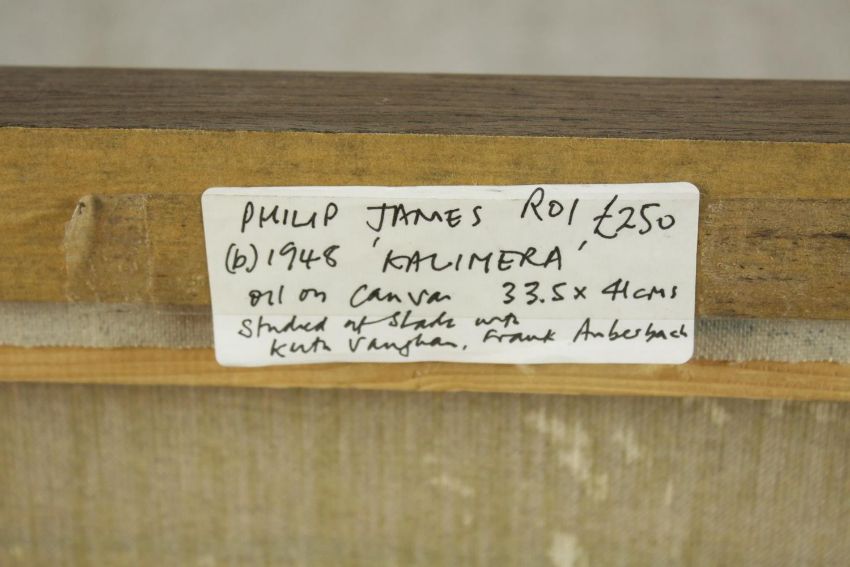 PHILIP JAMES ROI £250
(b) 1948 'KALIMERA'
oil on canvas 33.5 x 41cms
Studied at Slade with
Keith Vaughan, Frank Auberbach